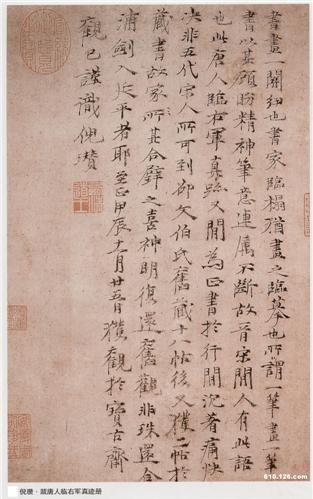 書畫一關紐也書家臨榻猶畫之臨摹也所謂一筆畫一筆
書以其顧盼精神筆意連屬不斷故晉宋閒人有此語
也此唐人臨右軍真跡又閒為正書於行閒沉著痛快
決非五代宋人所可到卻文伯氏舊藏十八帖後又獲二帖於
藏書故家所其合璧之喜神明復還舊觀非珠還合
浦劍入延平者耶至正甲辰十一月廿五日獲觀於寶古齋
觀已謹識倪瓚
倪瓒·跋唐人临右军真迹册
610.126.com